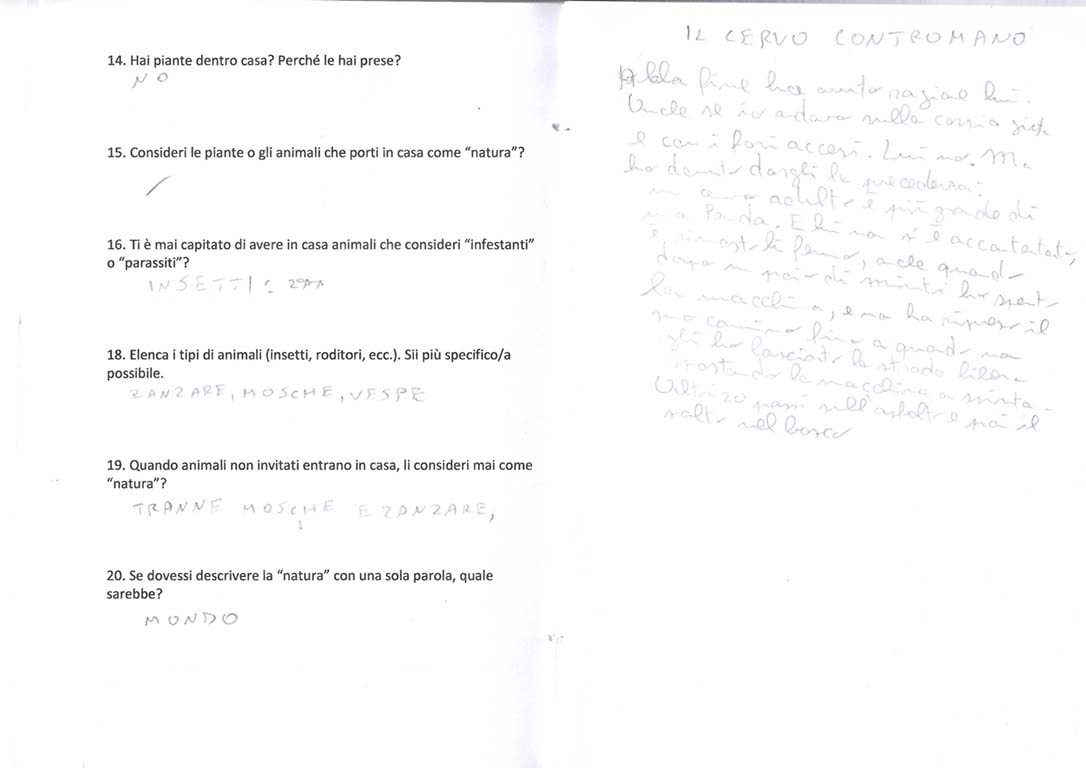 14. Hai piante dentro casa? Perché le hai prese?
NO
15. Consideri le piante o gli animali che porti in casa come “natura”?
/
16. Ti è mai capitato di avere in casa animali che consideri “infestanti”
o “parassiti”?
INSETTI
18. Elenca i tipi di animali (insetti, roditori, ecc.). Sii più specifico/a
possibile.
ZANZARE, MOSCHE, VESPE
19. Quando animali non invitati entrano in casa, li consideri mai come
“natura”?
TRANNE MOSCHE E ZANZARE,
20. Se dovessi descrivere la “natura” con una sola parola, quale
sarebbe?
MONDO
IL CERVO CONTROMANO
Alla fine ha avuto ragione lui.
Anche se io andavo sulla corsia giusta
e con i fari accesi. Lui no. Ma
ho dovuto dargli la precedenza:
un cervo adulto è più grande di
una Panda. E lui non si è accontentato,
è rimasto lì fermo, anche quando
dopo un paio di minuti ho spento
la macchina, e non ha ripreso il
suo cammino fino a quando non
gli ho lasciato la strada libera
spostando la macchina a
Altri 20 passi sull'asfalto e poi il
salto nel bosco